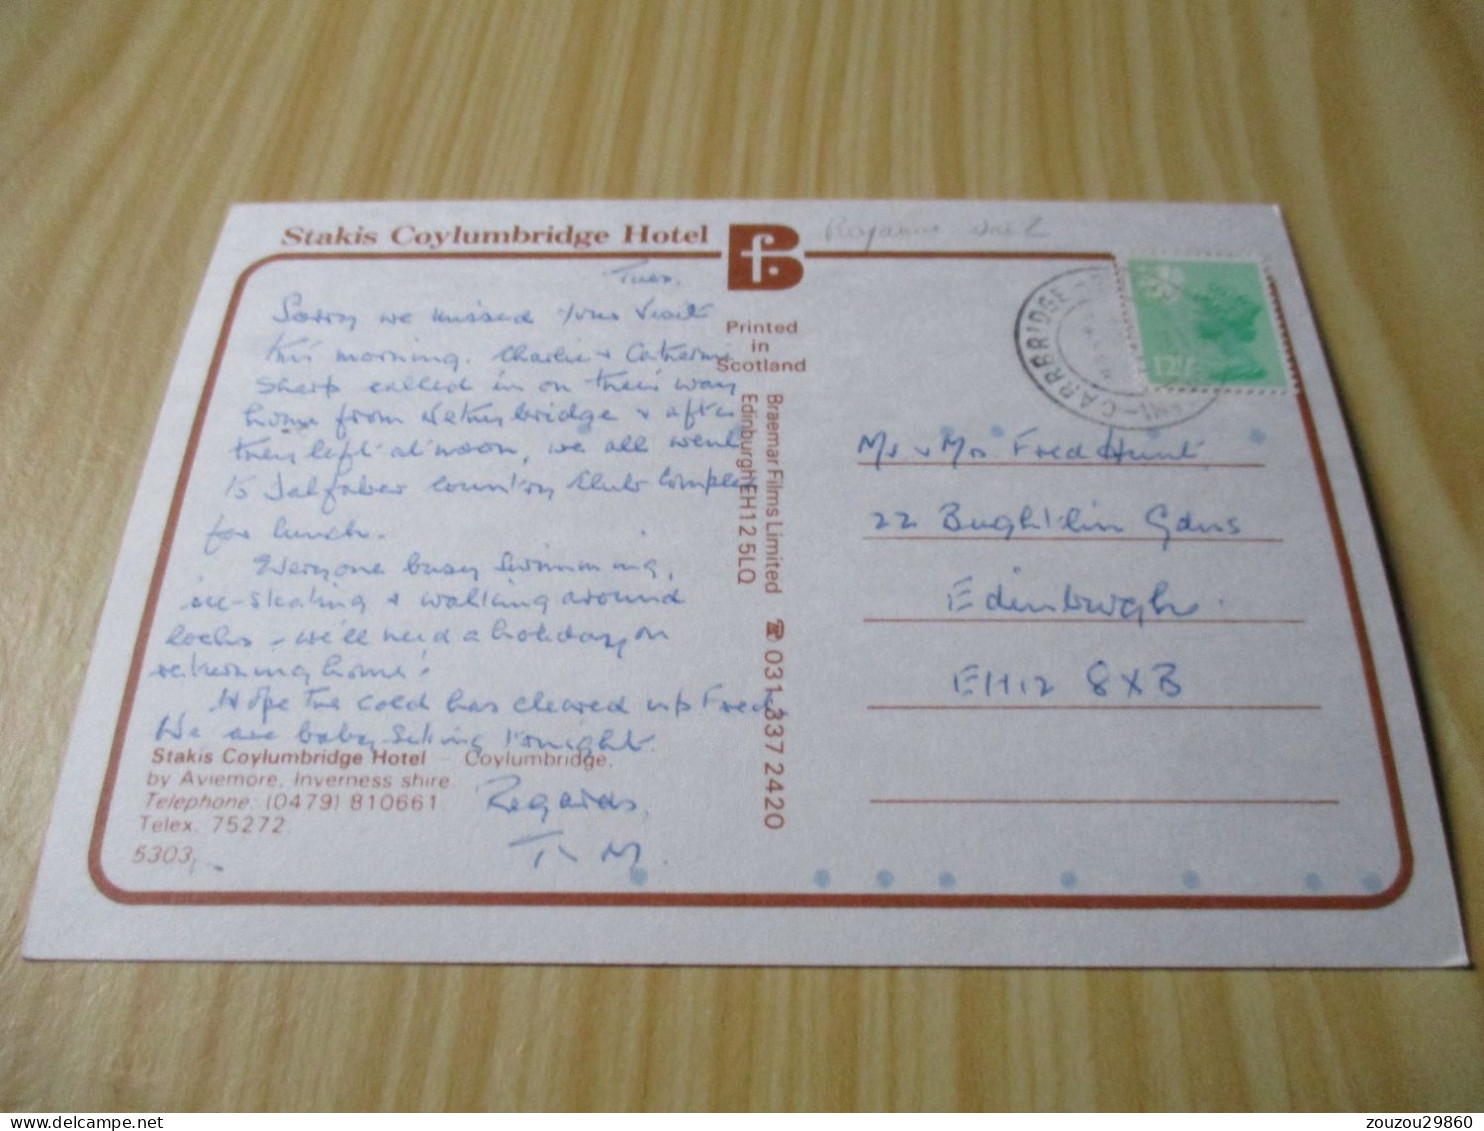 Stakis Coylumbridge Hotel
Bf.
Tues.
Sorry we missed your visit
this morning. Charlie + Catherine
Sharp called in on their way
home from Nethybridge + after
they left at noon, we all went
to Dalfaber Country Club Complex
for lunch.
Everyone busy swimming,
ice-skating + walking around
lochs - we'll need a holiday on
returning home!
Hope the cold has cleared up Fred!
We are baby sitting tonight.
Regards,
T + M.
Stakis Coylumbridge Hotel – Coylumbridge,
by Aviemore, Inverness shire.
Telephone: (0479) 810661
Telex. 75272.
5303
Printed
in
Scotland
Braemar Films Limited ☎ 031-337 2420
Edinburgh EH12 5LQ
CARRBRIDGE
12½
Mr + Mrs Fred Hunt
22 Bughtlin Gdns
Edinburgh.
EH12 8XB
zouzou29860